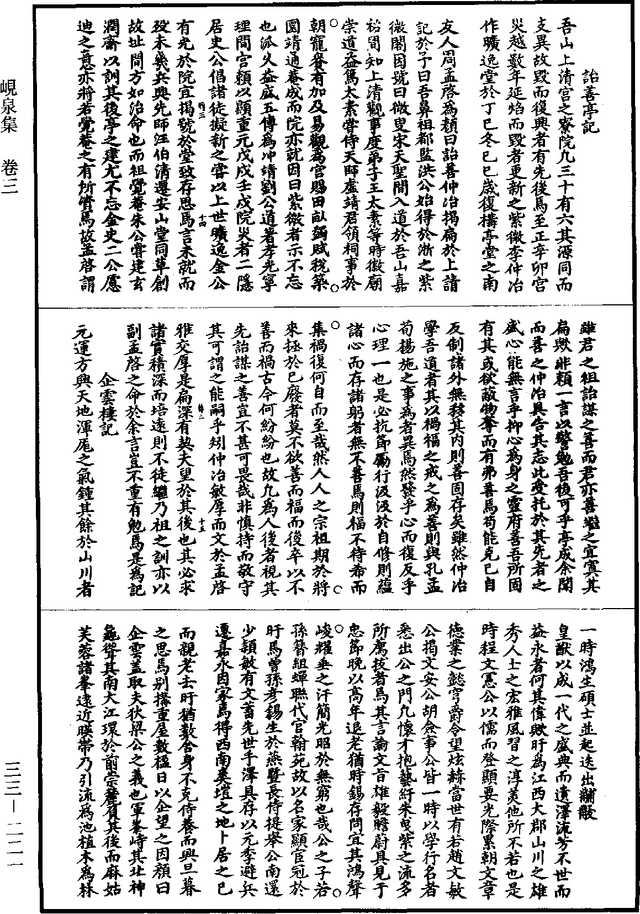 詒善亭記
吾山上清宮之寮院凡三十有六其源同而
支異故毀而復興者有先後焉至正辛卯宮
災越數年延焰而毀者更新之紫微李仲冶
作曠逸堂於丁巳冬己巳歲復構亭堂之南
友人周孟啓為顏曰詒善仲冶揭扁於上請
記於予曰吾鼻祖都監洪公始得於浙之紫
微閣因號曰微叟宋天聖間入道於吾山嘉
祐間知上清觀事度弟子王太素等時徽廟
崇道益篤太素嘗侍天師虛靖君領祠事於
朝寵眷有加及易觀為宮賜田畝蠲賦稅築
圜靖通菴成而院亦就因曰紫微者示不忘
也派火益盛五傳為冲靖劉公道著孝光寧
理間宮賴以顯重元戊戌壬戌院災者二隱
居史公倡諸徒擬新之嘗以上世曠逸金公
有光於院宜揭號於堂致存思焉言未就而
歿未幾兵興先師汪伯清遷安山堂同草創
故址間方如治命也而祖覺菴朱公嘗建玄
潤齋以訓其後亭之建尤不忘金史二公愿
迪之意亦將若覺菴之有所嘗焉故孟啓謂
雖君之祖詒謀之善而君亦善繼之宜寘其
扁歟非賴一言以警勉吾後可乎亭成余閱
而善之仲冶具告其志此愛托於其先者之
盛心能無言乎抑心為身之靈府善吾所固
有其或欲敵物奪而有弗善焉苟能克己自
反制諸外無移其內則善固存矣雖然仲冶
學吾道者其以禍福之戒之為善則與孔孟
荀楊施之事為者異焉然發乎心而復反乎
心理一也是必抗節厲行汲汲於自修則蘊
諸心而存諸躬者無不善焉則福不待希而
集禍復何自而至哉然人人之宗祖期於將
來拯於已廢者莫不欲善而福而後卒以不
善而禍古今何紛紛也故凡為人後者視其
先詒謀之善豈不甚可畏哉非慎持而敬守
其可謂之能嗣乎矧仲冶敏厚而文於孟啓
雅交厚是扁深有契夫望於其後也其必求
諸實積深而培遠則不徒繼乃祖之訓亦以
副孟啓之命於余言豈不重有勉焉是為記
企雲樓記
元運方興天地渾厖之氣鍾其餘於山川者
一時鴻生碩士並起迭出黼黻
皇猷以成一代之盛典而遺澤流芳不世而
益永者何其偉歟盱為江西大郡山川之雄
秀人士之宏雅風習之淳美他所不若也是
時程文憲公以儒而登顯要先際累朝文章
德業之懿穹爵令望炫赫當世有若趙文敏
公揭文安公胡僉事公皆一時以學行名者
悉出公之門凡懷才抱藝紆朱曳紫之流多
所薦拔者焉其言論文旨雄毅贍蔚具見于
忠節晚以高年退老猶時錫存問宜其鴻聲
峻耀垂之汗簡光昭於無窮也哉公之子若
孫簪組蟬聯代官翰苑故以名家顯官冠於
盱焉曾孫彥錫生於燕暨長侍提舉公南還
少穎敏有文蓄先世手澤具存以元季避兵
遷嘉禾因家焉得西南異壇之地卜居之已
而親老去盱猶數舍身不克侍養而興旦暮
之思焉別搆重屋數楹日以企望之因顏曰
企雲蓋取夫狄梁公之義也軍峯峙其北神
龜聳其南大江環於前崇麓負其後而麻姑
芙蓉諸峯遠近暎帶乃引流為池植木為林
峴泉集
卷三
三三—二二一